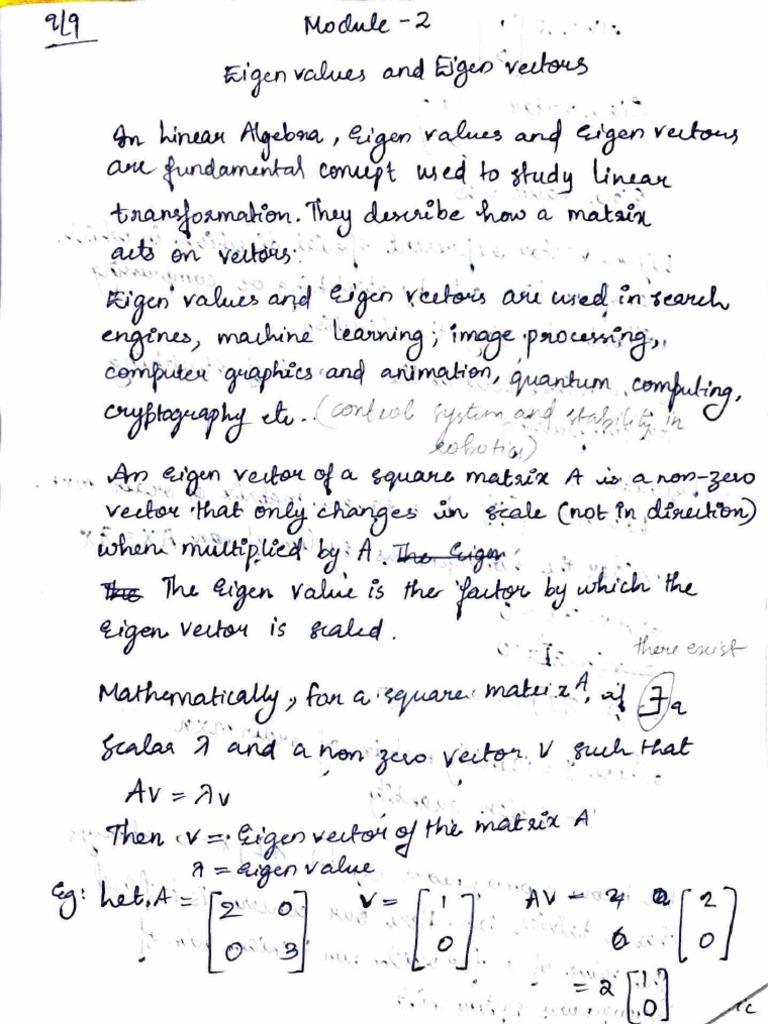 9/9
Module - 2
Eigen values and Eigen vectors
In Linear Algebra, Eigen values and Eigen vectors
are fundamental concept used to study linear
transformation. They describe how a matrix
acts on vectors.
Eigen values and Eigen vectors are used in search
engines, machine learning, image processing,
computer graphics and animation, quantum computing,
cryptography etc. (control system and stability in
robotics)
An Eigen vector of a square matrix A is a non-zero
vector that only changes in scale (not in direction)
when multiplied by A. The Eigen
The The Eigen value is the factor by which the
Eigen vector is scaled.
there exist
Mathematically, for a square matrix A, if ∃ a
scalar λ and a non zero vector V such that
AV = λV
Then V = Eigen vector of the matrix A
λ = Eigen value
Eg: Let, A = [2 0 V = [1 AV = [2
0 3] 0] 0]
= 2 [1
0]